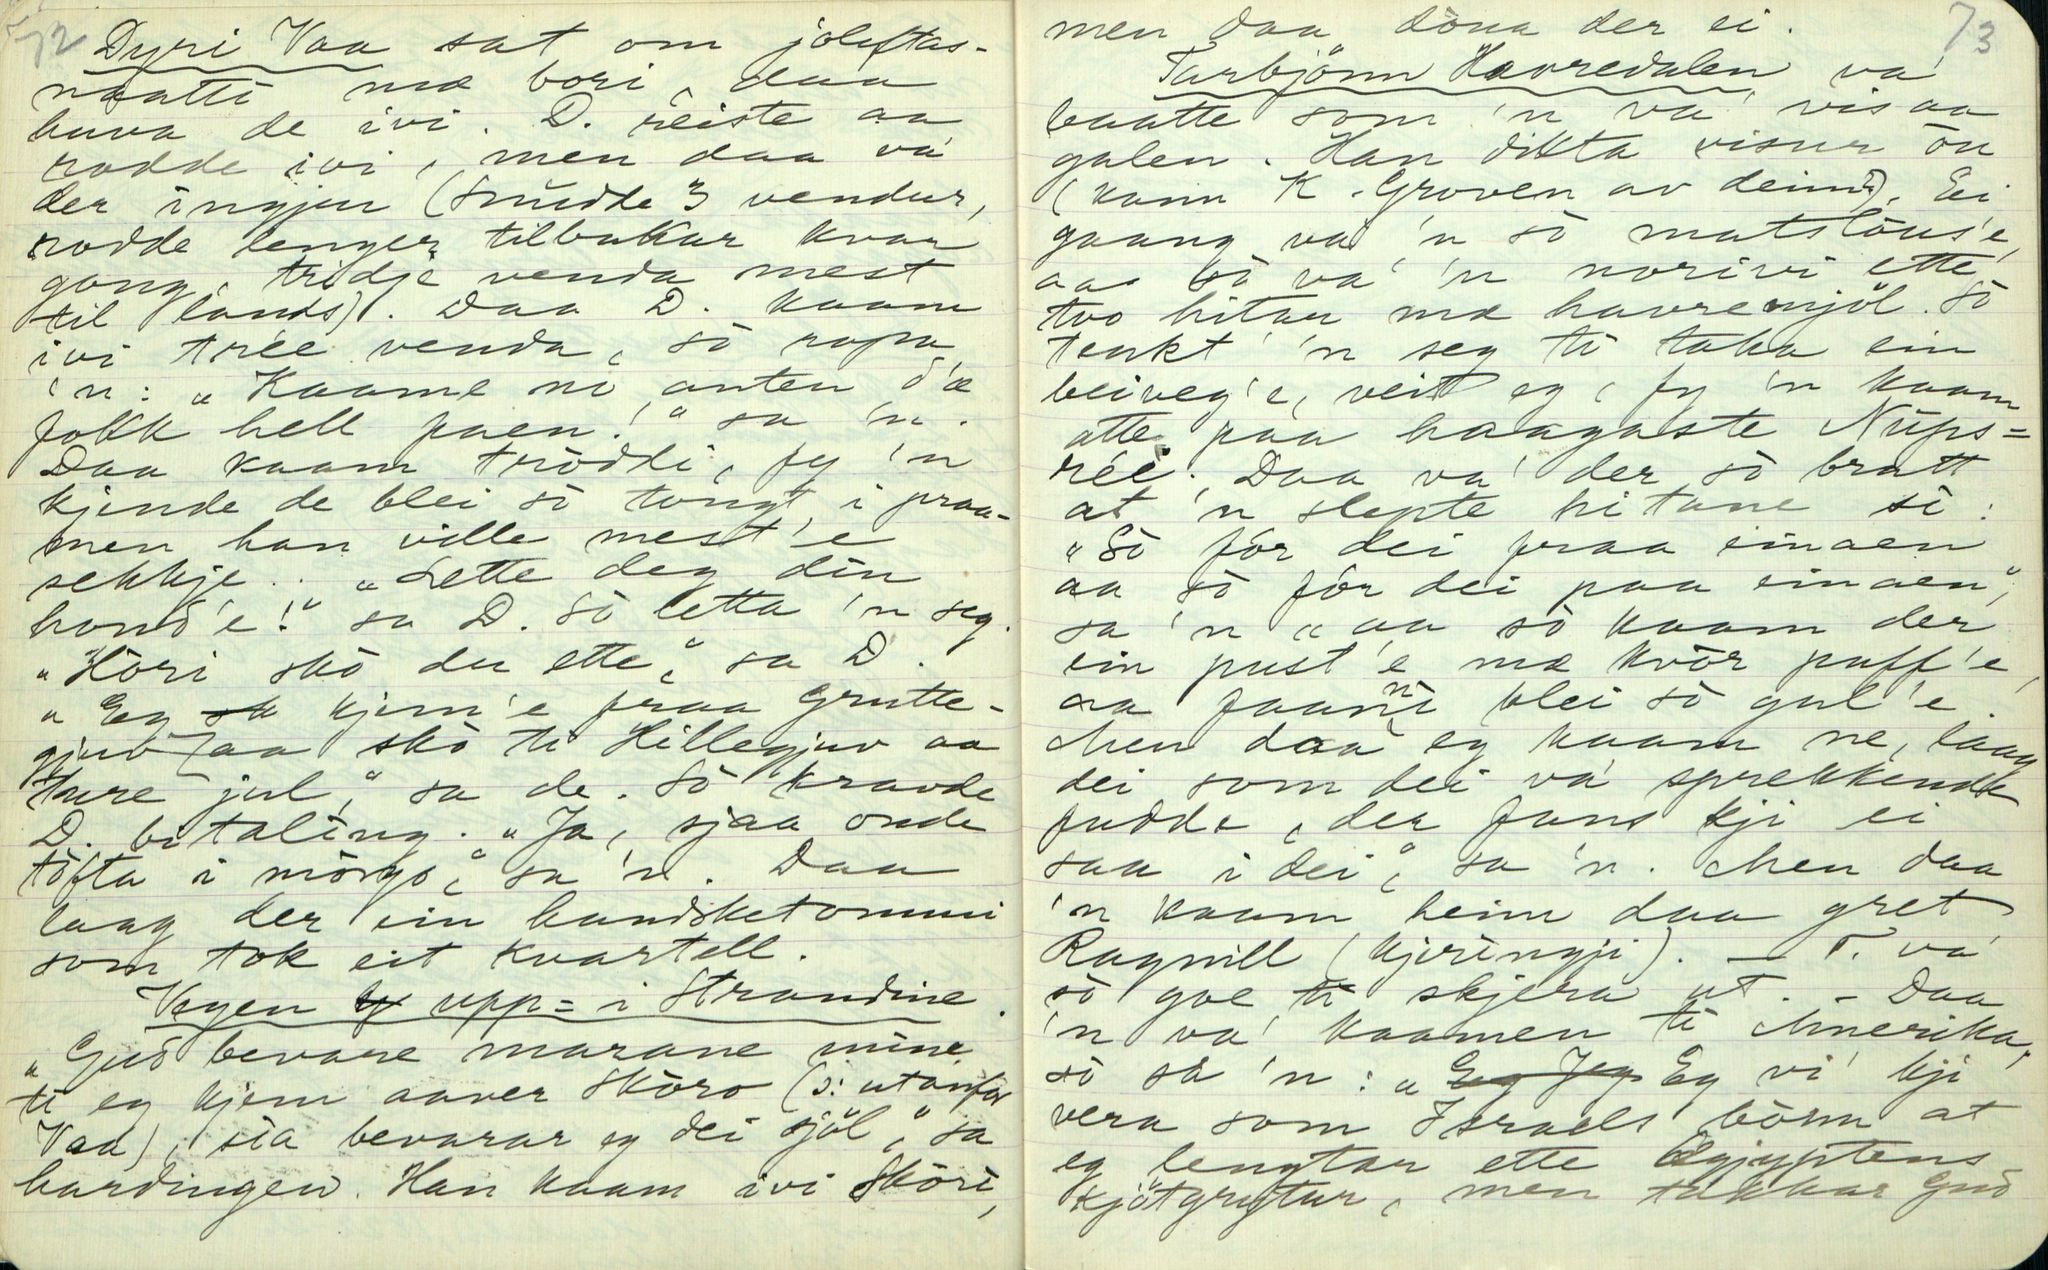 72
Dyri Vaa sat om joleftas-
naatti mæ bori, daa
huva de ivi. D. reiste aa
rodde ivi, men daa va'
der ingjen (snudde 3 vendur,
rodde lenger tilbakar kvar
gong, tridje venda mest
til lands). Daa D. kaam
ivi trée venda, sò ropa
'n: "Kaame no anten d'æ
folk hell faen!" sa 'n.
Daa kaam tròddi, fy 'n
kjende de blei sò tongt i praa-
men han ville mest'e
sekkje.. "Lette deg din
hond'e!" sa D. Sò letta 'n seg.
"Hòri skò du ette," sa D.
"Eg kjem'e fraa Grutte-
gjuv aa skò ti Hillegjuv aa
ture jul," sa de. Sò kravde
D. bitaling. "Ja, sjaa onde
tòfta i mòrgo," sa 'n. Daa
laag der ein handsketommi
som tok eit kvartell.
Vegen upp= i Strandine.
"Gud bevare marane mine
ti eg kjem aaver Skòro (ɔ: utanfor
Vaa), sia bevarar eg dei sjöl," sa
hardingen. Han kaam ivi Skòri,
men daa dòna der ei.
73
Tarbjönn Havredalen va'
baatte som 'n va' vis aa
galen. Han dikta visur òn
(kann K. Groven av deim?). Ei
gaang va' 'n sò matslöus'e,
aa sò va' 'n norivi ette
tvo hitar mæ havremjöl. Sò
tenkt' 'n seg ti taka ein
beiveg'e, veit eg, fy 'n kaam
atte paa haagaste Nups=
réi. Daa va' der sò bratt
at 'n slepte hitane si:
"Sò fór dei fraa einaen
aa sò fór dei paa einaen",
sa 'n "aa sò kaam der
ein pust'e mæ kvòr puff'e,
aa faanni blei sò gul'e.
Men daa eg kaam ne, laag
dei som dei va' sprekkende
fudde, der fans kji ei
saa i dei," sa 'n. Men daa
'n kaam heim daa gret
Ragnill (kjeringji). — T. va'
sò goe ti skjera ut. - Daa
'n va' kaamen ti Amerika,
sò sa 'n: "Eg Jeg Eg vi' kji
vera som Israels bònn at
eg lengtar ette Ægyptens
kjötgrytur, men takkar Gud